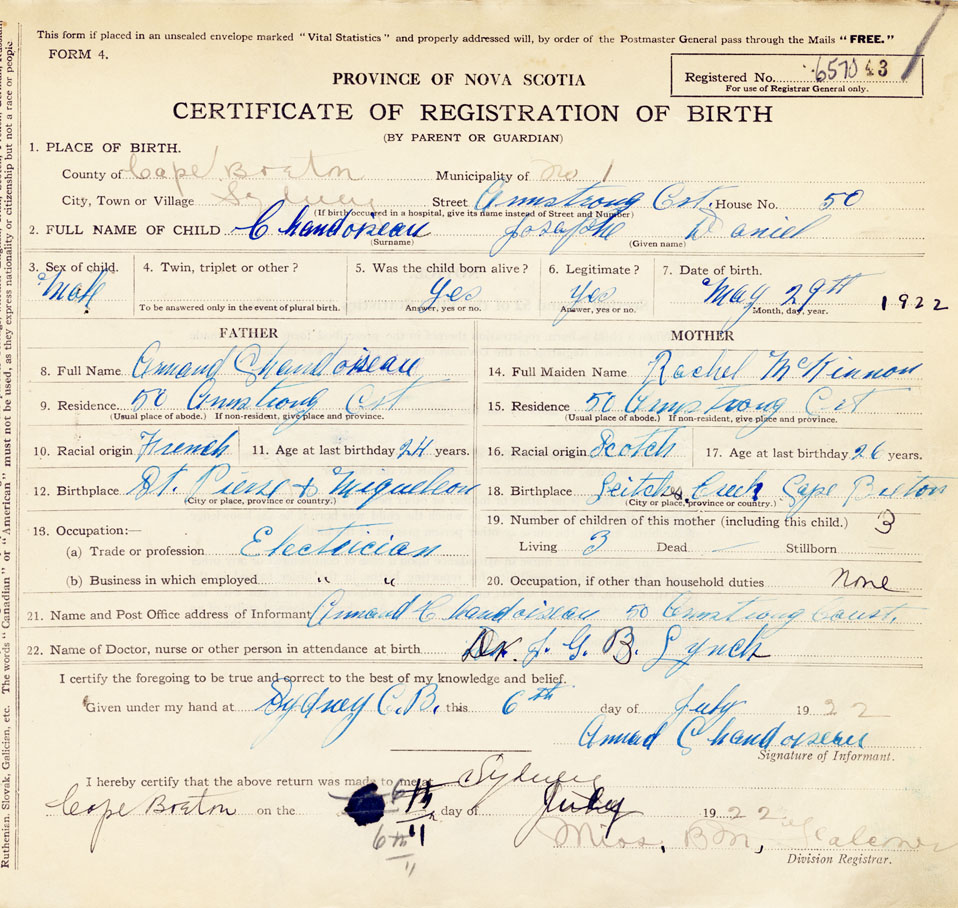 This form if placed in an unsealed envelope marked "Vital Statistics" and properly addressed will, by order of the Postmaster General pass through the Mails "FREE."
FORM 4.
Registered No. 657043
For use of Registrar General only.
PROVINCE OF NOVA SCOTIA
CERTIFICATE OF REGISTRATION OF BIRTH
(BY PARENT OR GUARDIAN)
1. PLACE OF BIRTH.
County of Cape Breton Municipality of No 1
City, Town or Village Sydney Street Armstrong Crt. House No. 50
(If birth occurred in a hospital, give its name instead of Street and Number)
2. FULL NAME OF CHILD Chandoiseau Josephe Daniel
(Surname) (Given name)
3. Sex of child. 4. Twin, triplet or other? 5. Was the child born alive? 6. Legitimate? 7. Date of birth.
Male Yes Yes May 29th 1922
To be answered only in the event of plural birth. Answer, yes or no. Answer, yes or no. Month, day, year.
FATHER MOTHER
8. Full Name Armand Chandoiseau 14. Full Maiden Name Rachel McKinnon
9. Residence 50 Armstrong Crt 15. Residence 50 Armstrong Crt
(Usual place of abode.) If non-resident, give place and province. (Usual place of abode.) If non-resident, give place and province.
10. Racial origin French 11. Age at last birthday 24 years. 16. Racial origin Scotch 17. Age at last birthday 26 years.
12. Birthplace St. Pierre & Miqueleon 18. Birthplace Leitches Creek Cape Breton
(City or place, province or country.) (City or place, province or country.)
13. Occupation:— 19. Number of children of this mother (including this child.) 3
(a) Trade or profession Electrician Living 3 Dead — Stillborn —
(b) Business in which employed " " 20. Occupation, if other than household duties None
21. Name and Post Office address of Informant Armand Chandoiseau 50 Armstrong Court.
22. Name of Doctor, nurse or other person in attendance at birth Dr. J. G. B. Lynch
I certify the foregoing to be true and correct to the best of my knowledge and belief.
Given under my hand at Sydney C.B. this 6th day of July 1922
Armad Chandoiseau
Signature of Informant.
I hereby certify that the above return was made to me at Sydney
Cape Breton on the 6th day of July 1922
6th
11
Miss. B M,
Division Registrar.
Ruthenian, Slovak, Galician, etc. The words "Canadian" or "American" must not be used, as they express nationality or citizenship but not a race or people